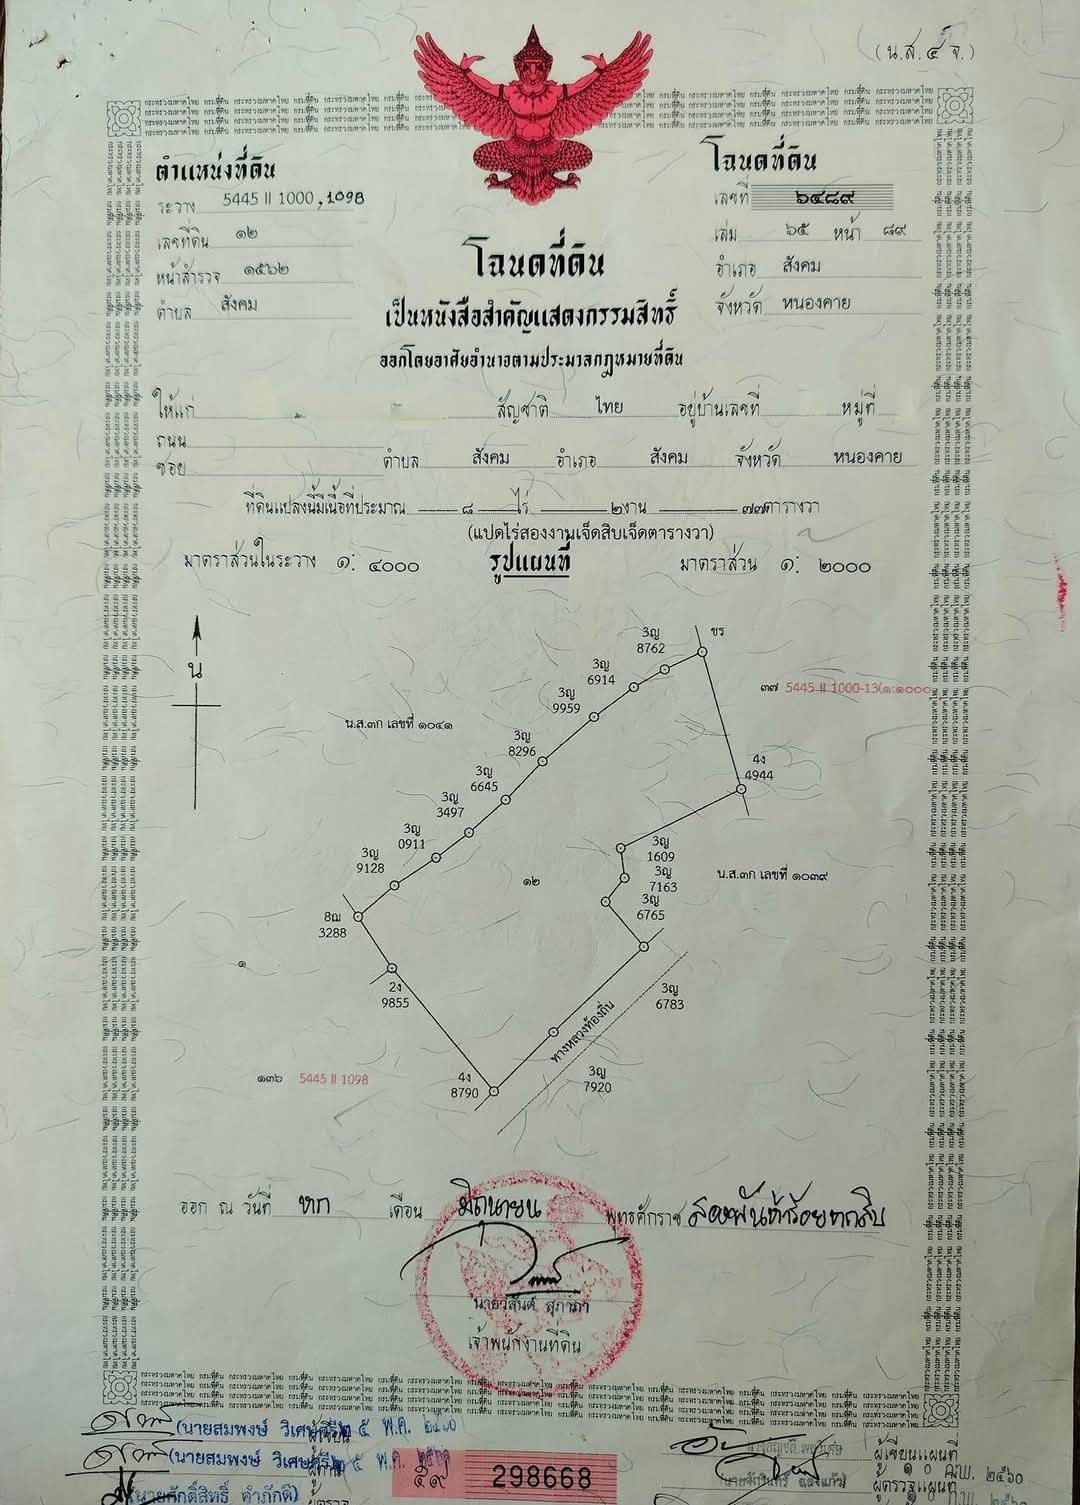 (น.ส.๔ จ.)
ตำแหน่งที่ดิน
ระวาง 5445 II 1000,1098
เลขที่ดิน ๑๒
หน้าสำรวจ ๑๕๖๒
ตำบล สังคม
โฉนดที่ดิน
เลขที่ ๖๔๘๙
เล่ม ๖๕ หน้า ๘๙
อำเภอ สังคม
จังหวัด หนองคาย
โฉนดที่ดิน
เป็นหนังสือสำคัญแสดงกรรมสิทธิ์
ออกโดยอาศัยอำนาจตามประมวลกฎหมายที่ดิน
ให้แก่ สัญชาติ ไทย อยู่บ้านเลขที่ หมู่ที่
ถนน
ซอย ตำบล สังคม อำเภอ สังคม จังหวัด หนองคาย
ที่ดินแปลงนี้มีเนื้อที่ประมาณ ๘ ไร่ ๒งาน ๗๗ตารางวา
(แปดไร่สองงานเจ็ดสิบเจ็ดตารางวา)
มาตราส่วนในระวาง ๑: ๔๐๐๐ รูปแผนที่ มาตราส่วน ๑: ๒๐๐๐
น
3ญ
8762
ชร
3ญ
6914
๓๗ 5445 II 1000-13(๑:๑๐๐๐
3ญ
9959
น.ส.๓ก เลขที่ ๑๐๔๑
3ญ
8296
4ง
4944
3ญ
6645
3ญ
3497
3ญ
0911
3ญ
9128
3ญ
1609
3ญ
7163
น.ส.๓ก เลขที่ ๑๐๓๙
๑๒
3ญ
6765
8ฌ
3288
๑
2ง
9855
3ญ
6783
ทางหลวงท้องถิ่น
๑๓๖ 5445 II 1098
4ง
8790
3ญ
7920
ออก ณ วันที่ หก เดือน มิถุนายน พุทธศักราช สองพันห้าร้อยหกสิบ
นายวสันต์ สุภาภา
เจ้าพนักงานที่ดิน
(นายสมพงษ์ วิเศษศรี) ผู้เขียน ๒ ๕ พ.ค. ๒๕๖๐
(นายสมพงษ์ วิเศษศรี) ผู้ทาน ๒ ๕ พ.ค. ๒๕๖๐
(นายศักดิ์สิทธิ์ คำภักดี) ผู้ตรวจ
๕๙
298668
ผู้เขียนแผนที่
ผู้ตรวจแผนที่
๑ ๐ ก.พ. ๒๕๖๐
๑ ๐ ก.พ. ๒๕๖๐